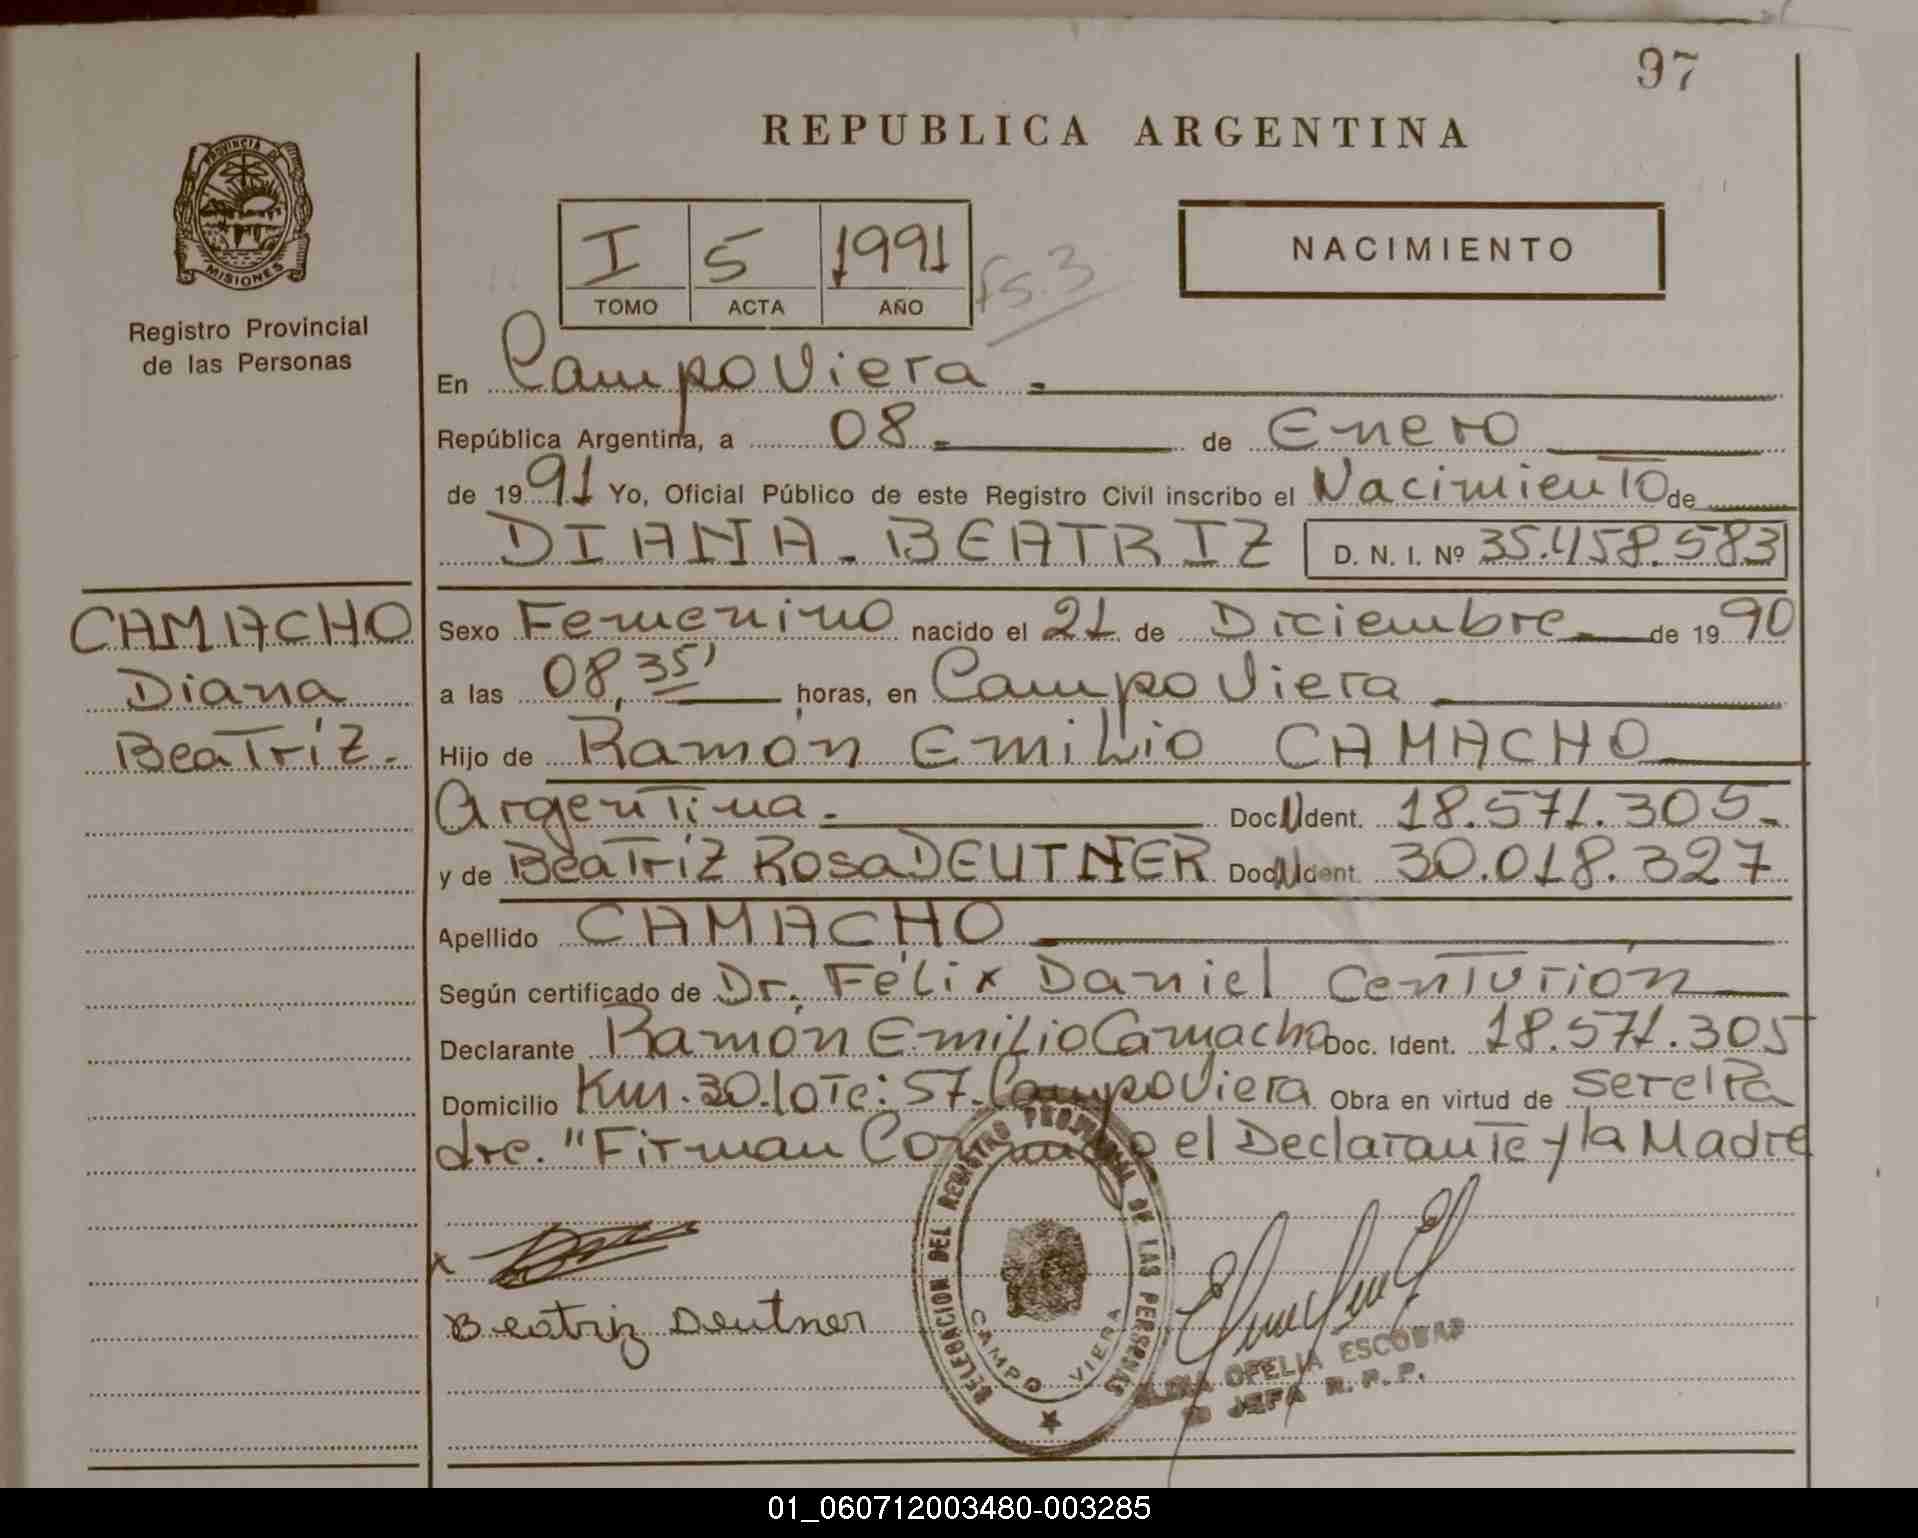 97
REPUBLICA ARGENTINA
PROVINCIA DE
MISIONES
Registro Provincial
de las Personas
I 5 1991 fs. 3
TOMO ACTA AÑO
NACIMIENTO
En Campo Viera.
República Argentina, a 08. de Enero
de 1991 Yo, Oficial Público de este Registro Civil inscribo el Nacimiento de
DIANA. BEATRIZ D. N. I. Nº 35.458.583
CAMACHO
Diana
Beatríz.
Sexo Femenino nacido el 21 de Diciembre de 1990
a las 08,35' horas, en Campo Viera
Hijo de Ramón Emilio CAMACHO
Argentina. Doc. Ident. 18.571.305.
y de Beatríz Rosa DEUTNER Doc. Ident. 30.018.327
Apellido CAMACHO
Según certificado de Dr. Félix Daniel Centurión
Declarante Ramón Emilio Camacho Doc. Ident. 18.571.305
Domicilio Km. 30. lote: 57. Campo Viera Obra en virtud de ser el Pa
dre. "Firman Conmigo el Declarante y la Madre
x
Beatriz Deutner
DELEGACION DEL REGISTRO PROVINCIAL DE LAS PERSONAS
CAMPO VIERA
OFELIA ESCOBAR
JEFA R. P. P.
01_060712003480-003285